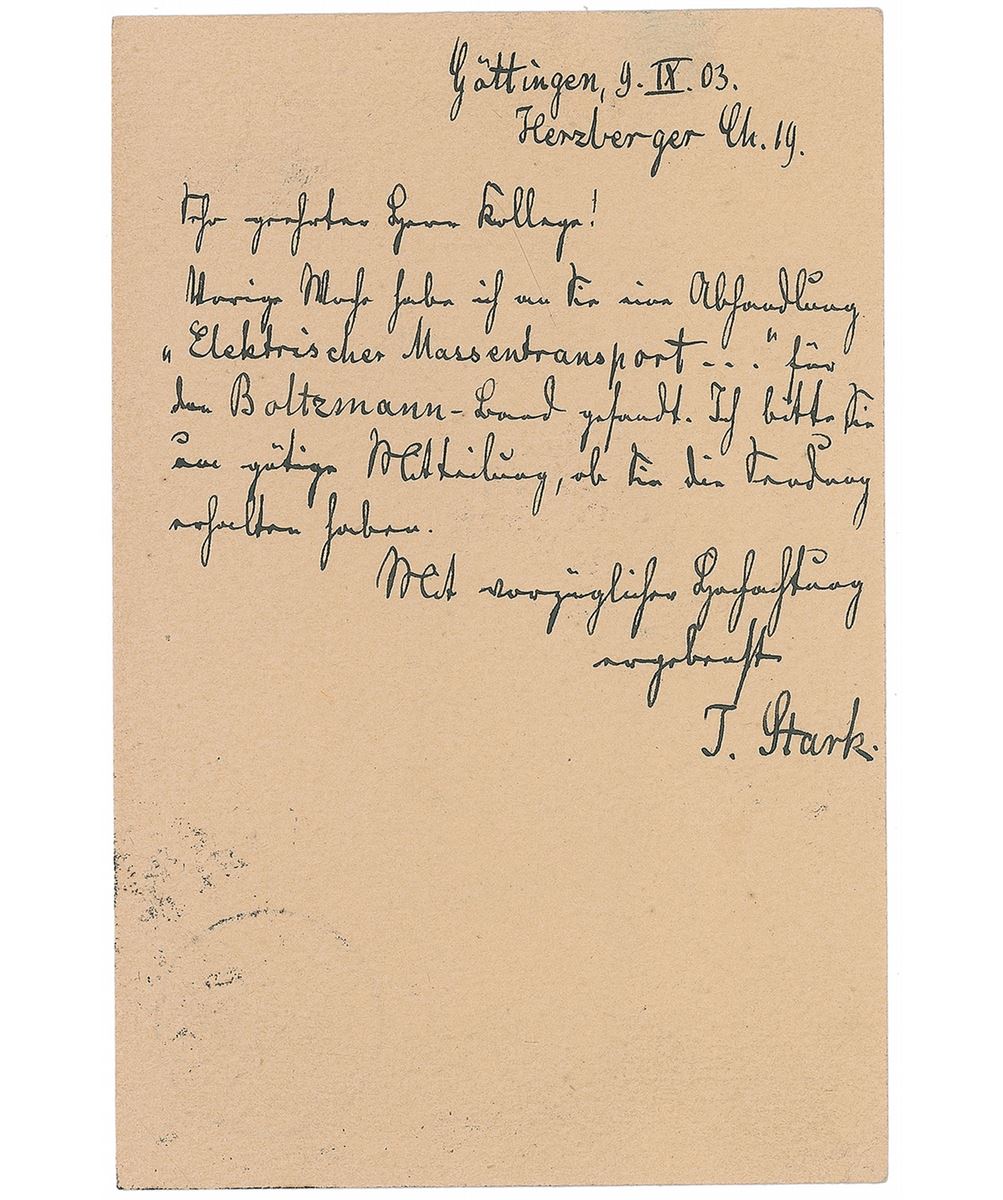 Göttingen, 9. IX. 03.
Herzberger Ch. 19.
Sehr geehrter Herr Kollege!
Vorige Woche habe ich an Sie eine Abhandlung
„Elektrischer Massentransport - - ." für
den Boltzmann-Band gesandt. Ich bitte Sie
um gütige Mitteilung, ob Sie die Sendung
erhalten haben.
Mit vorzüglicher Hochachtung
ergebenst
J. Stark.